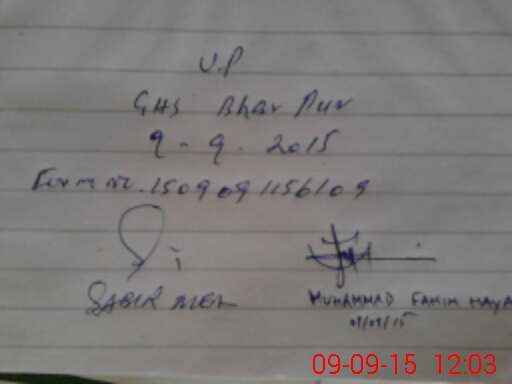 V.P
GHS Bhar Pur
9-9.2015
Form no. 1509091156109
SABIR MEA
MUHAMMAD FAHIM HAYA
09/09/15
09-09-15 12:03